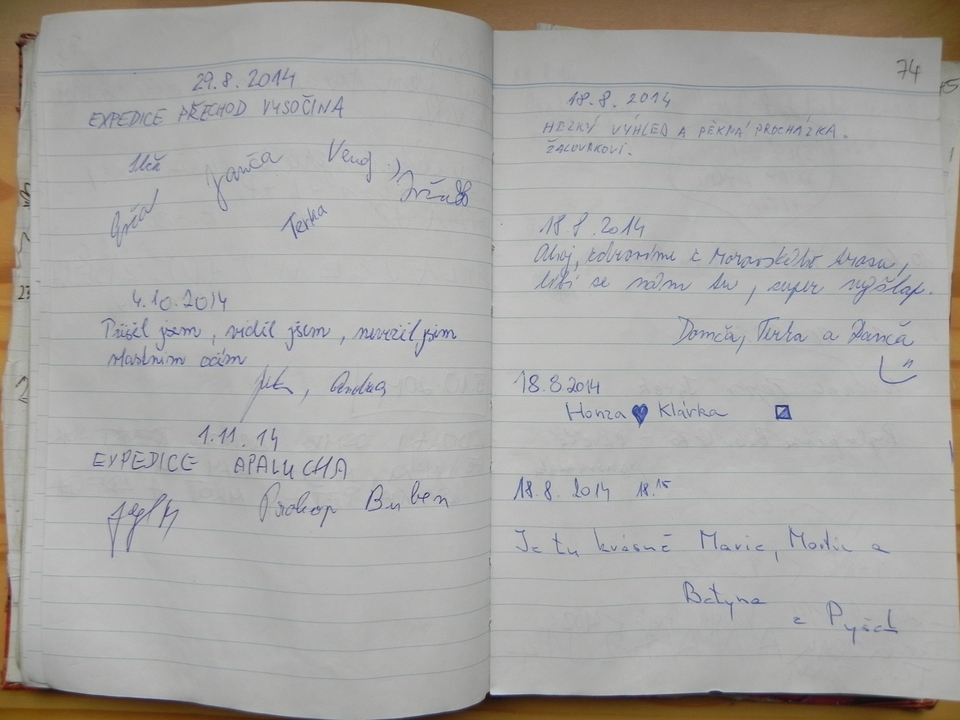 29.8.2014
EXPEDICE PŘECHOD VYSOČINA
Janča Vend
Terka
4.10.2014
Přišel jsem, viděl jsem, nevěřil jsem
vlastním očím
, Andrea
1.11.14
EXPEDICE APALUCHA
Prokop Buben
74
18.8.2014
HEZKÝ VÝHLED A PĚKNÁ PROCHÁZKA.
ŽALOUDKOVI.
18.8.2014
Ahoj, zdravíme z Moravského krasu,
líbí se nám tu, super výšlap.
Domča, Terka a Danča
18.8.2014
Honza Klárka
18.8.2014 18.15
Je tu krásně Marie, Martin a
Batyna
a